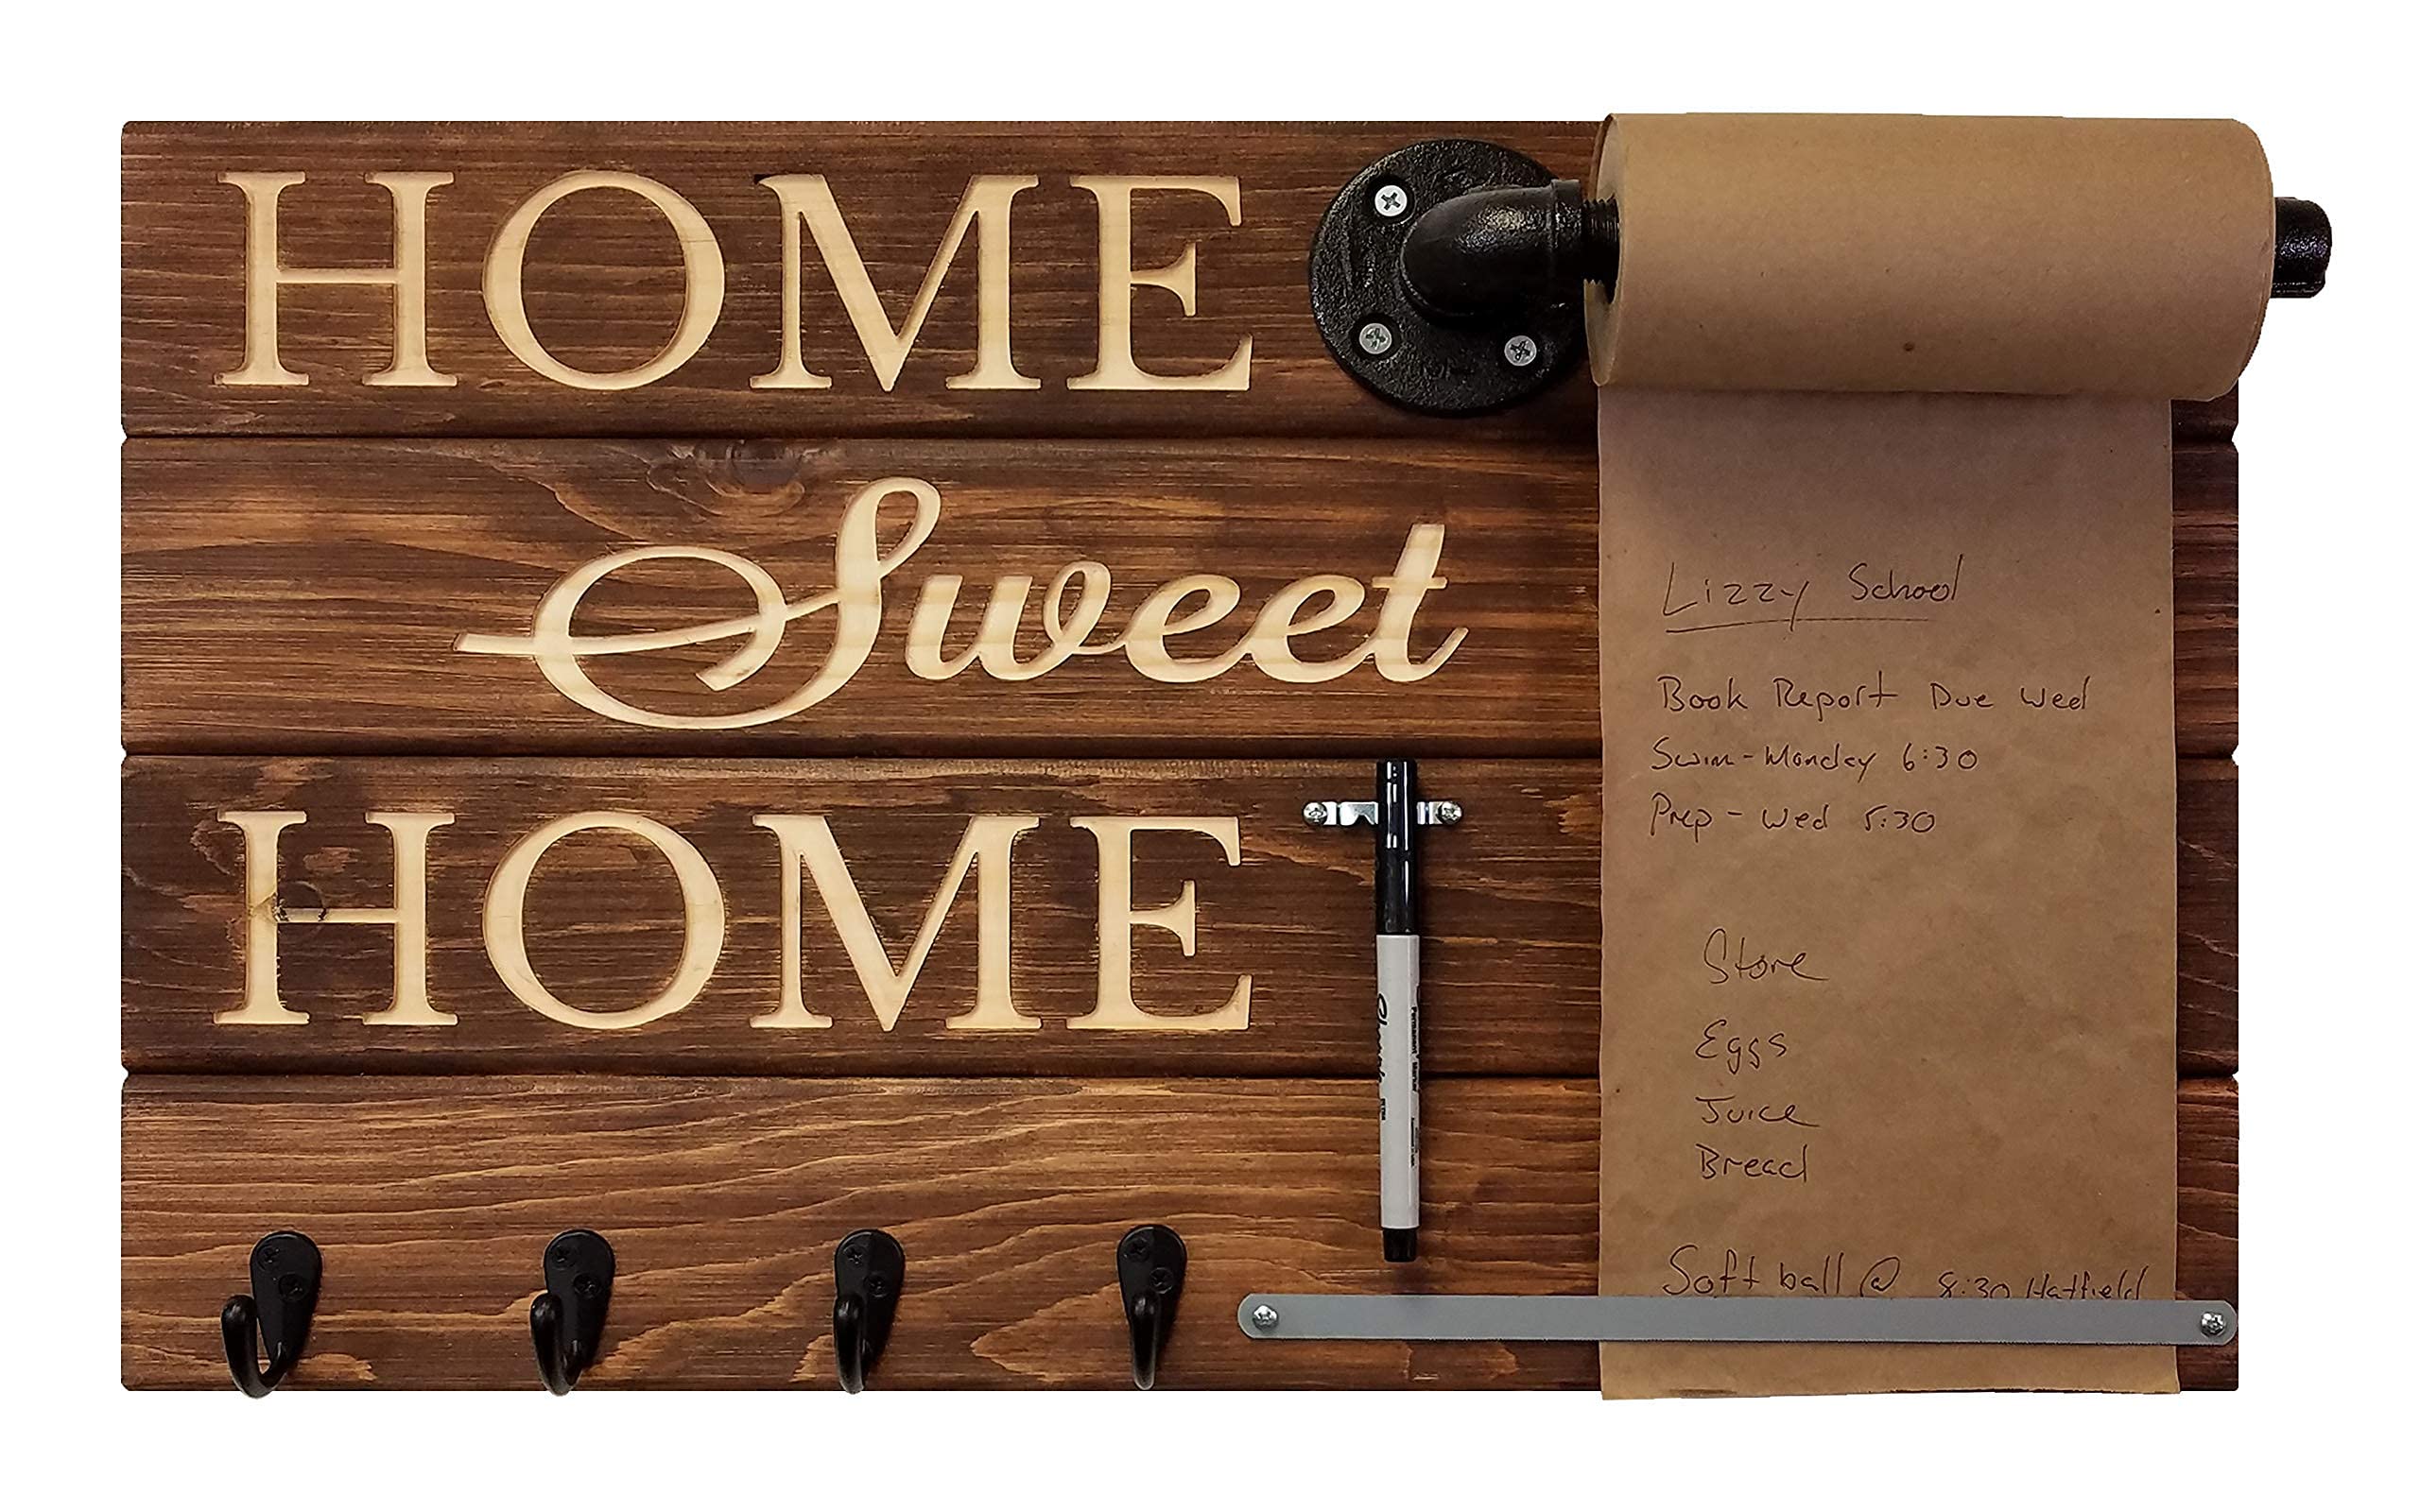 HOME
Sweet
HOME
Lizzy School
Book Report Due Wed
Swim - Monday 6:30
Prep - Wed 5:30
Store
Eggs
Juice
Bread
Softball @ 8:30 Hatfield
Sharpie
Permanent Marker